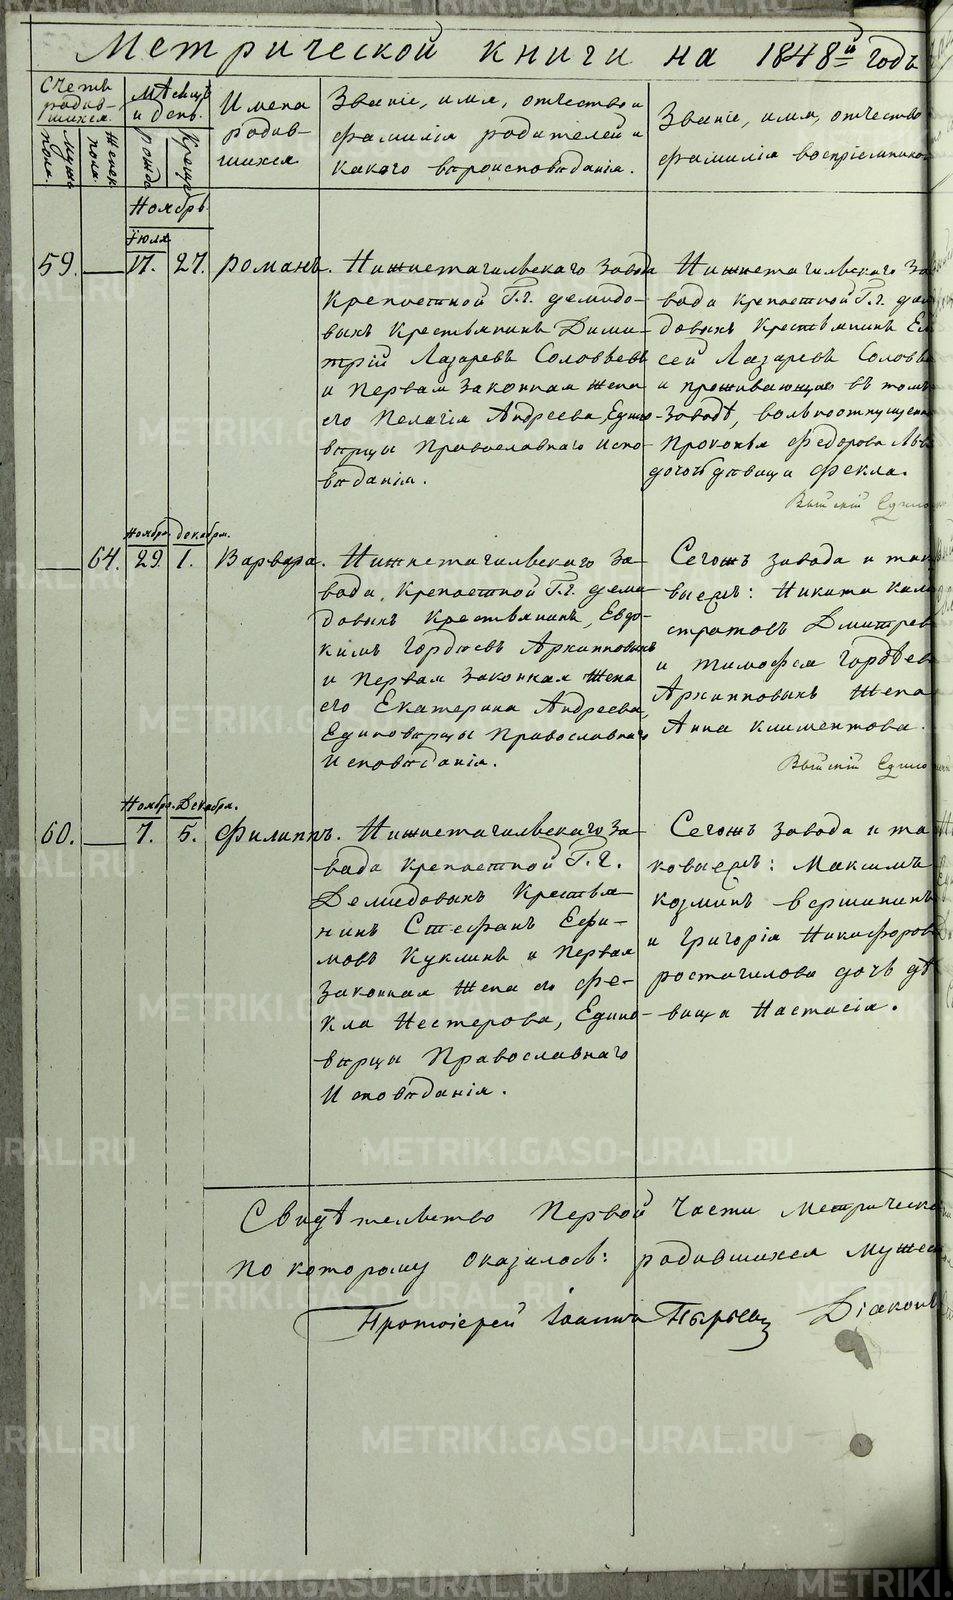 Метрической книги на 1848й годъ
Счетъ родив-шихся.
Мужеск пола.
Женск пола.
Мѣсяцъ и день.
Рожд
Крещ
Имена родив-шихся
Званіе, имя, отчество и
фамилія родителей и
какого вѣроисповѣданія.
Званіе, имя, отчество
фамилія воспріемников
Ноябрь
Іюля
59.
17. 27.
Романъ.
Нижнетагильскаго завода
крепостной Г.г. Демидо-
выхъ крестьянинъ Дими-
трій Лазаревъ Соловьевъ
и первая законная жена
его Пелагія Андреева, Едино-
вѣрцы Православнаго испо-
вѣданія.
Нижнетагильскаго за
вода крепостной Г.г. Де
довыхъ крестьянинъ Ел
сей Лазаревъ Соловь
и проживающаго въ томъ
заводѣ, вольноотпущенн
Прокопья Федорова
дочь дѣвица Фекла.
Выйскій Едино
Ноября. Декабря.
64. 29. 1.
Варвара.
Нижнетагильскаго за-
вода, крепостной Г.г. Деми-
довыхъ крестьянинъ, Евдо-
кимъ Гордѣевъ Архиповыхъ
и первая законная жена
его Екатерина Андреева,
Единовѣрцы Православнаго
исповѣданія.
Сегожъ завода и так
выежъ: Никита Кали
стратовъ Дмитрев
и Тимофея Гордѣев
Архиповыхъ жена
Анна Климентова.
Выйскій Едино
Ноября. Декабря.
60. 7. 5.
Филиппъ.
Нижнетагильскаго за-
вода крепостной Г.г.
Демидовыхъ крестья
нинъ Стефанъ Ефи-
мовъ Куклинъ и первая
законная жена его Фе-
кла Нестерова, Едино-
вѣрцы Православнаго
исповѣданія.
Сегожъ завода и та
ковыежъ: Максимъ
Козминъ Вершининъ
и Григорія Никифоров
Ростагилова дочь дѣ
вица Настасія.
Свидѣтельство Первой части метрическо
по которому оказалось: родившихся мужес
Протоіерей Іоаннъ Пырьевъ Діаконъ